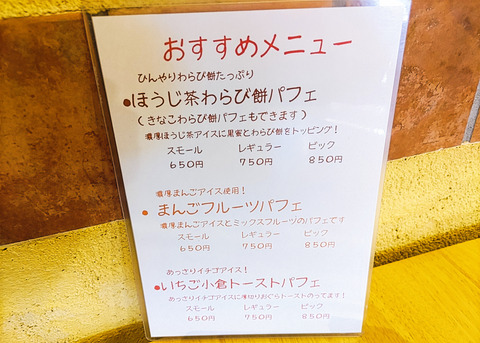 おすすめメニュー
ひんやりわらび餅たっぷり
●ほうじ茶わらび餅パフェ
(きなこわらび餅パフェもできます)
濃厚ほうじ茶アイスに黒蜜とわらび餅をトッピング!
スモール レギュラー ビック
650円 750円 850円
濃厚まんごアイス使用!
●まんごフルーツパフェ
濃厚まんごアイスとミックスフルーツのパフェです
スモール レギュラー ビック
650円 750円 850円
あっさりイチゴアイス!
●いちご小倉トーストパフェ
あっさりイチゴアイスに厚切りおぐらトーストのってます!
スモール レギュラー ビック
650円 750円 850円